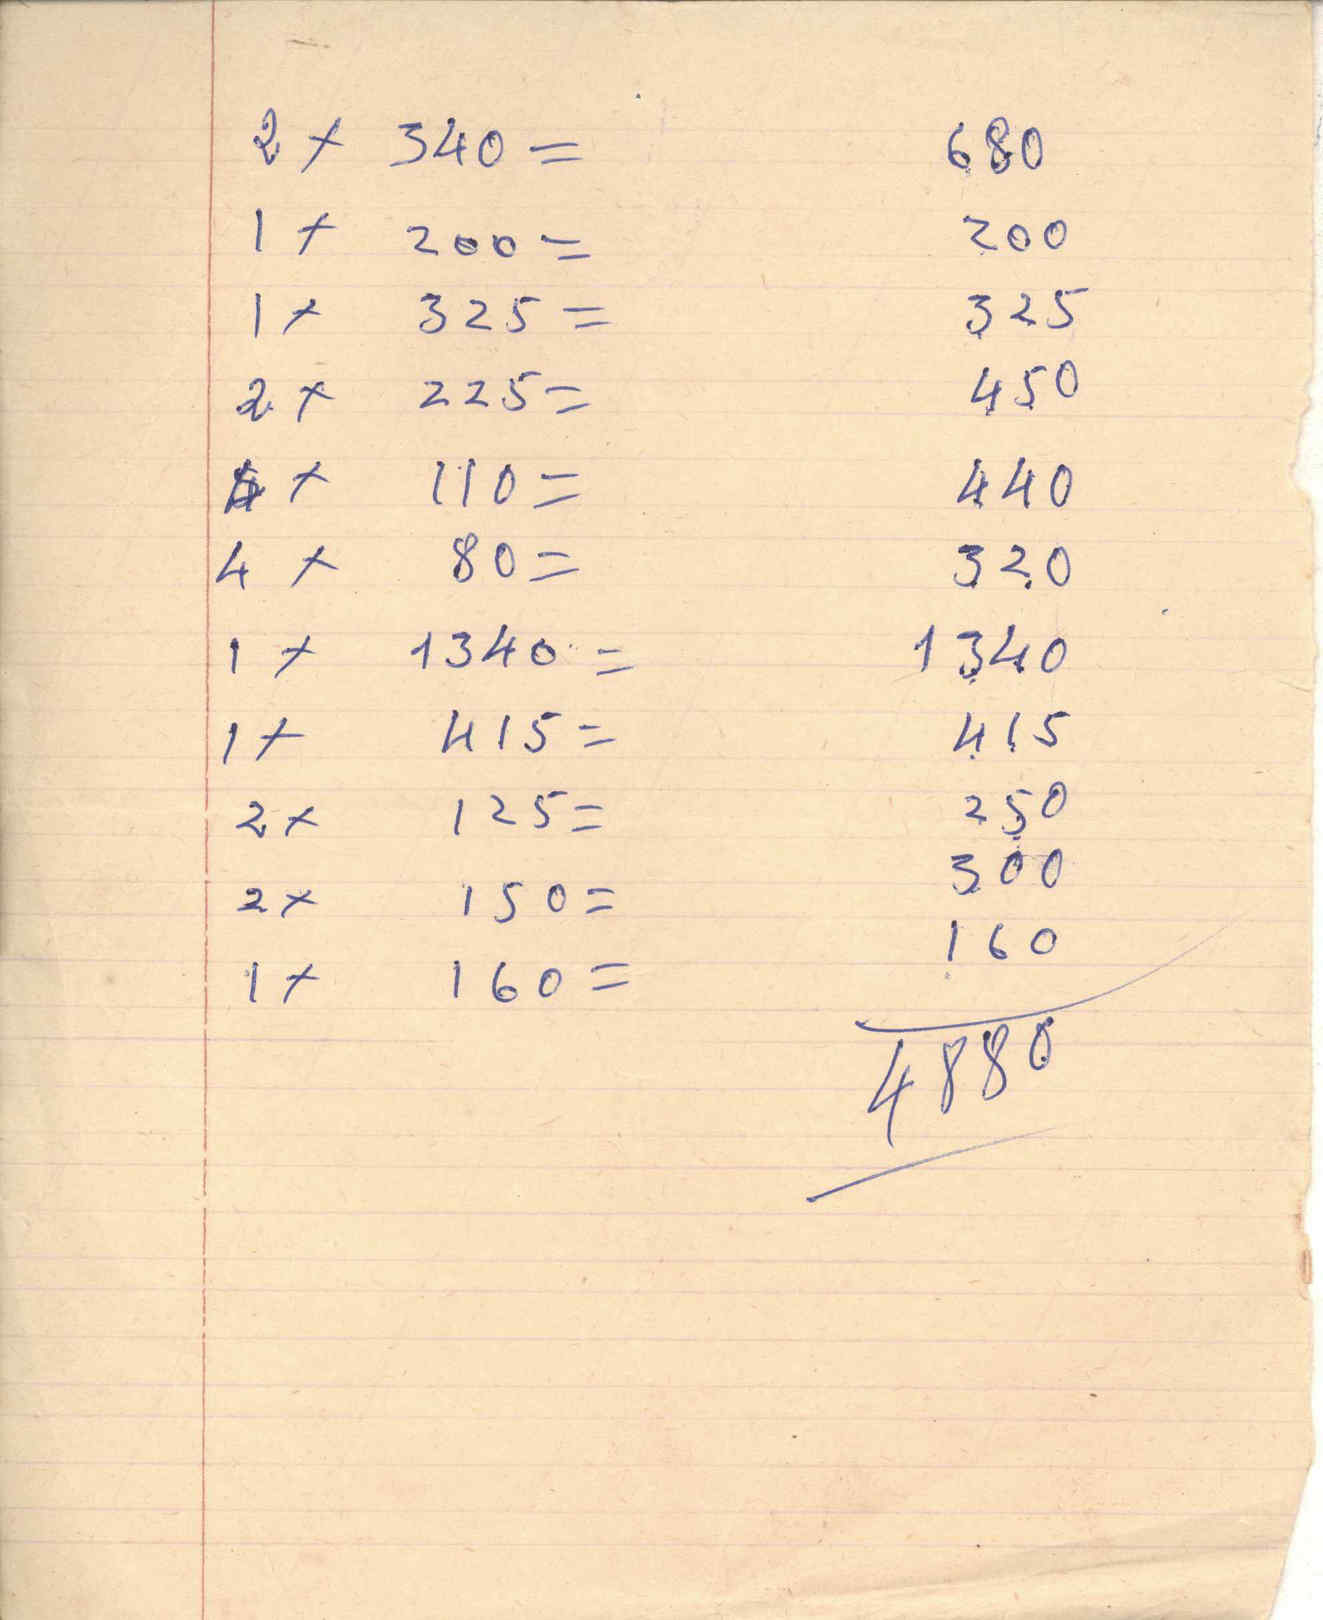 2 x 340 = 680
1 x 200 = 200
1 x 325 = 325
2 x 225 = 450
4 x 110 = 440
4 x 80 = 320
1 x 1340 = 1340
1 x 415 = 415
2 x 125 = 250
2 x 150 = 300
1 x 160 = 160
4880